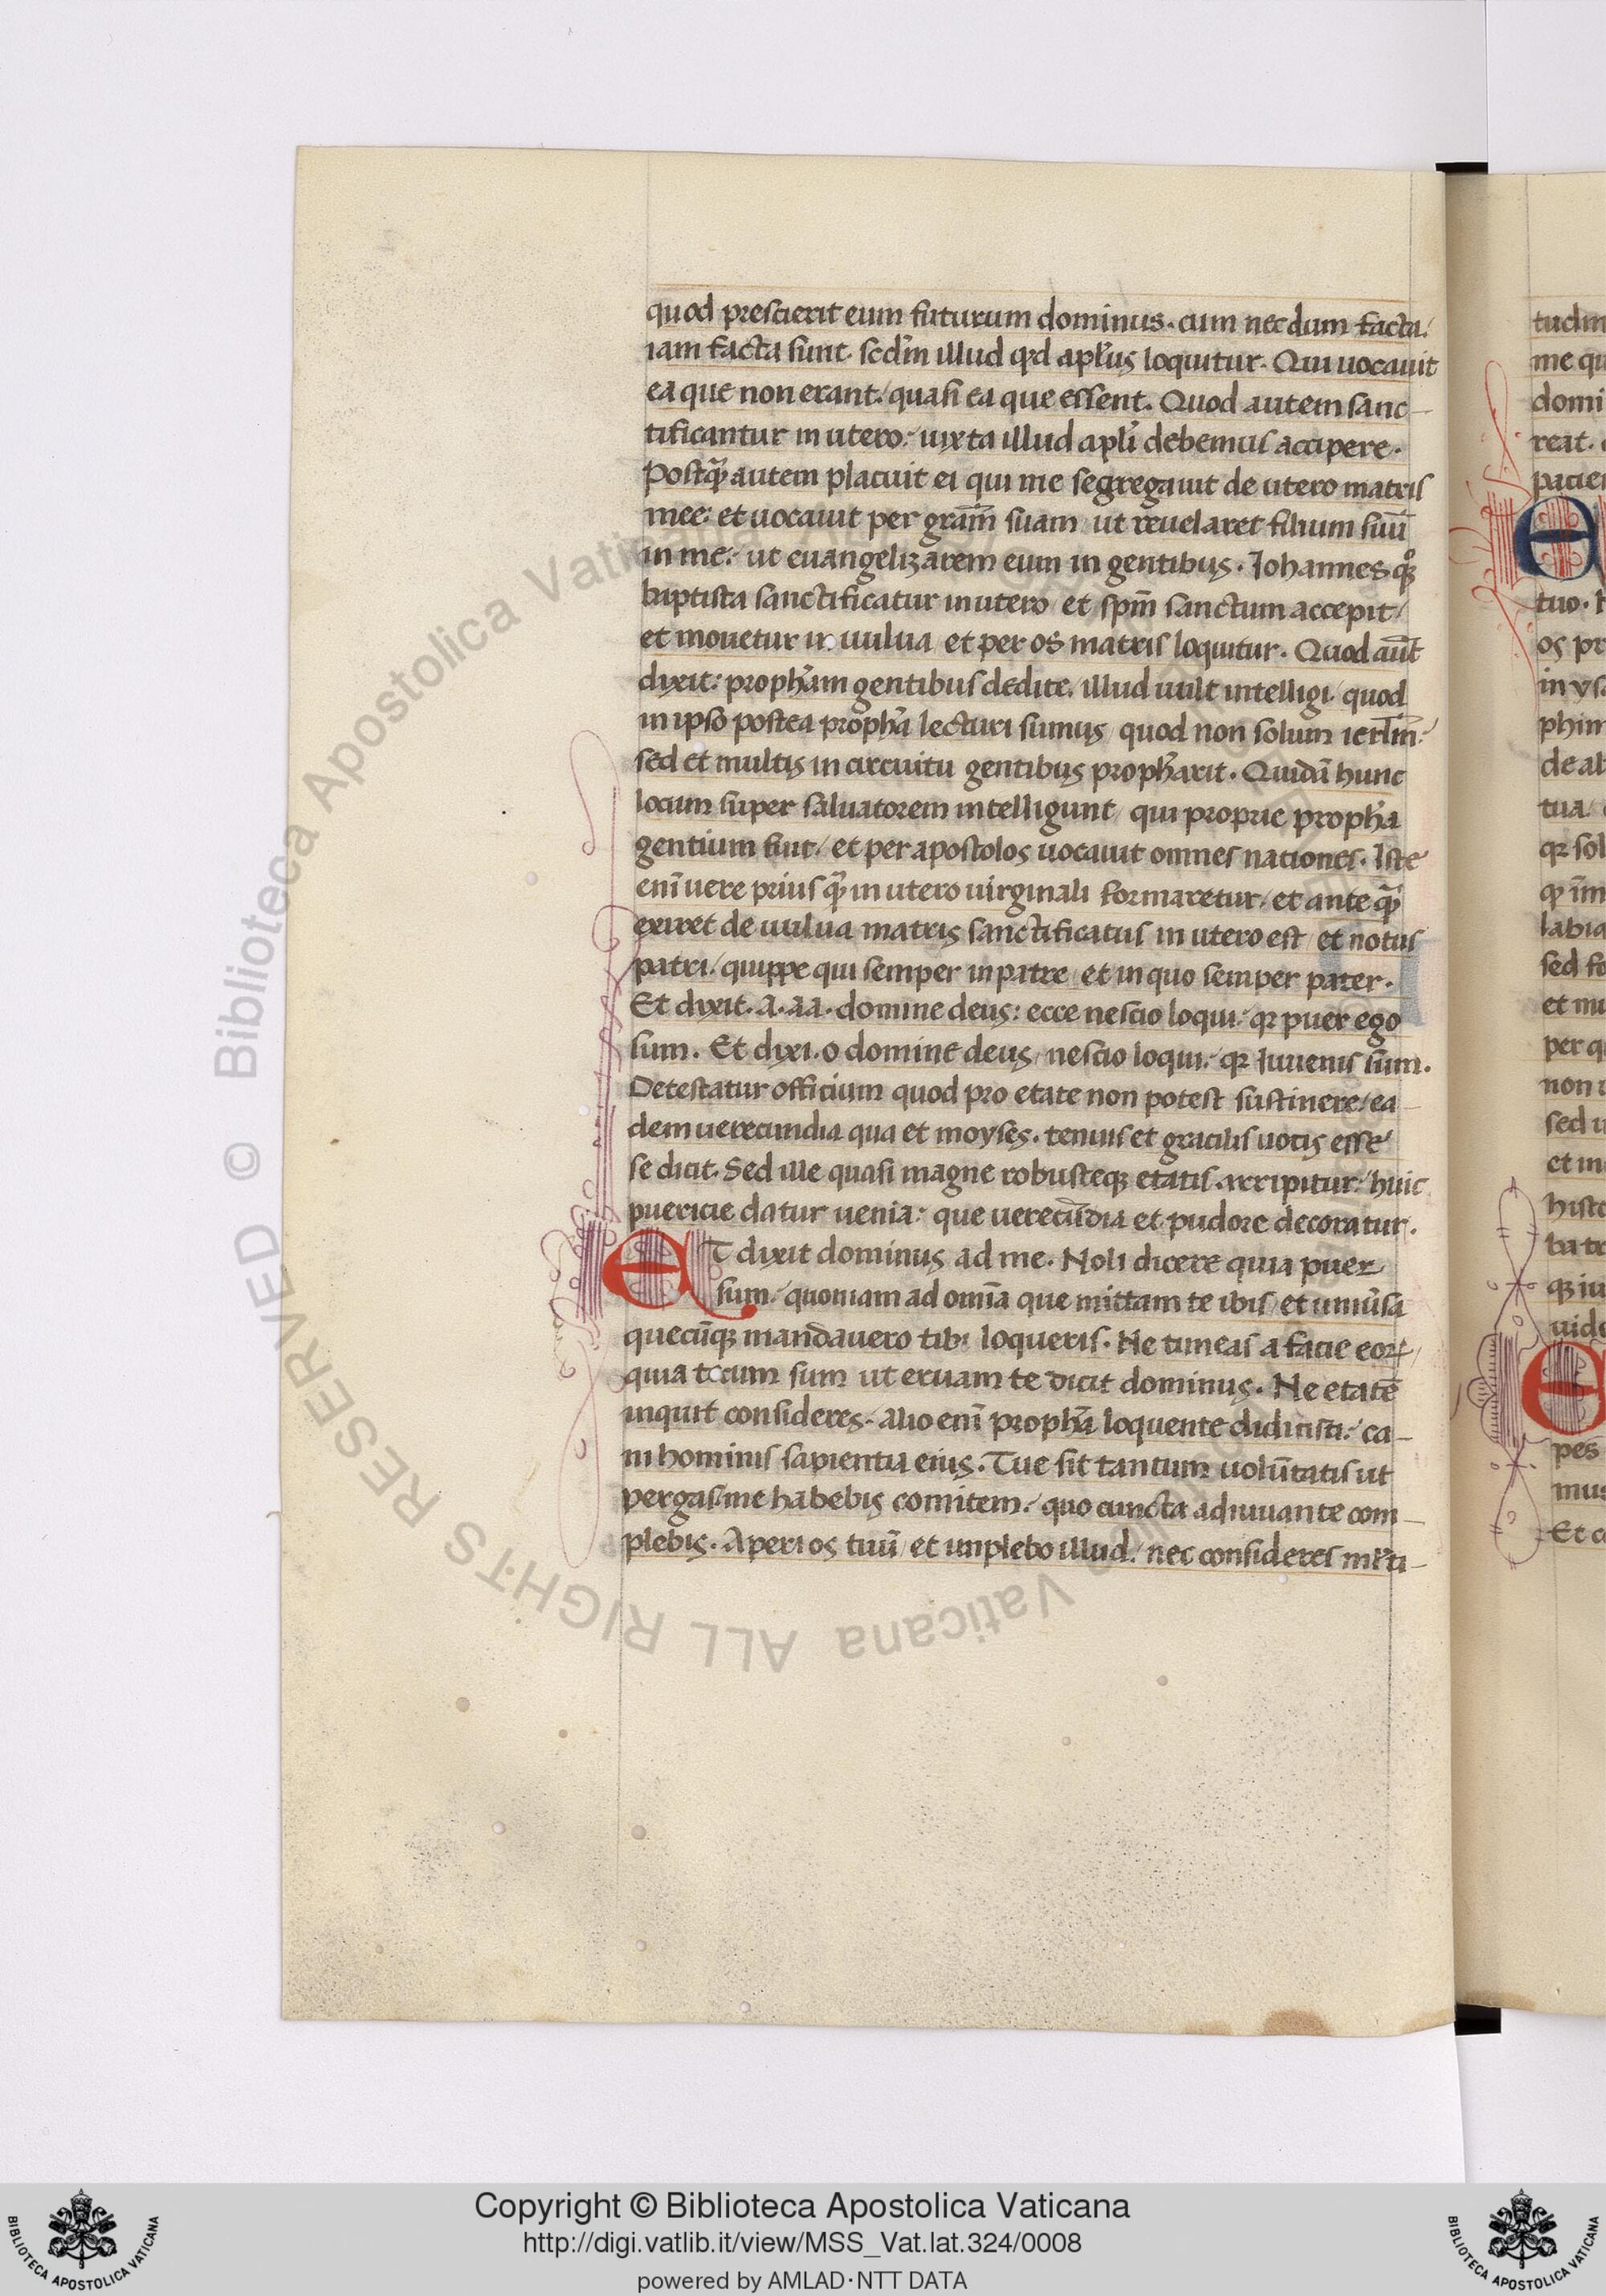 quod prescierit eum futurum dominus. cum necdum facta/
iam facta sunt. scd̄m illud qd apl̄us loquitur. Qui uocauit
ea que non erant/ quasi ea que essent. Quod autem sanc-
tificantur in utero: iuxta illud apl̄i debemus accipere.
Postq̄ autem placuit ei qui me segregauit de utero matris
mee: et uocauit per grām suam ut reuelaret filium suū
in me: ut euangelizarem eum in gentibus. Iohannes qꝫ
baptista sanctificatur in utero et spm̄ sanctum accepit/
et mouetur in uulua et per os matris loquitur. Quod aūt
dixit: propham̄ gentibus dedi te. illud uult intelligi/ quod
in ipso postea propha̅ lecturi sumus quod non solum ierl̄m:
sed et multis in circuitu gentibus propharit. Quidā hunc
locum super saluatorem intelligunt/ qui proprie propha̅
gentium fuit/ et per apostolos uocauit omnes nationes. Iste
enī uere prius q̄ in utero uirginali formaretur/ et ante q̄
exiret de uulua matris sanctificatus in utero est/ et notus
patri/ quippe qui semper in patre/ et in quo semper pater.
Et dixit. a. aa. domine deus: ecce nescio loqui: qꝛ puer ego
sum. Et dixi. o domine deus/ nescio loqui: qꝛ Iuuenis sum.
Detestatur officium quod pro etate non potest sustinere/ ea-
dem uerecundia qua et moyses. tenuis et gracilis uocis esse
se dicit. Sed ille quasi magne robusteqꝫ etatis arripitur: huic
puericie datur uenia: que uerecūdia et pudore decoratur.
ET dixit dominus ad me. Noli dicere quia puer
sum/ quoniam ad omīa que mittam te ibis/ et uniūsa
quecūqꝫ mandauero tibi loqueris. Ne timeas a facie eoꝝ/
quia tecum sum ut eruam te dicit dominus. Ne etatē
inquit consideres. alio enī propha̅ loquente didicisti: ca-
ni hominis sapientia eius. Tue sit tantum uolūtatis ut
pergas/ me habebis comitem: quo cuncta adiuuante com-
plebis. Aperi os tuū/ et implebo illud/ nec consideres ml̄ti-
tudin
me qu
domi
reat.
pacien
E
tuo.
os pr
in vs
phim
de al
tua
qꝛ sol
labia
sed fo
et mu
per q
non
sed u
et in
histo
ba te
qꝫ iu
uide
E
pes
mus
Et c
© Biblioteca Apostolica Vaticana ALL RIGHTS RESERVED
Copyright © Biblioteca Apostolica Vaticana
http://digi.vatlib.it/view/MSS_Vat.lat.324/0008
powered by AMLAD·NTT DATA
BIBLIOTECA APOSTOLICA VATICANA
BIBLIOTECA APOSTOLICA VATICANA